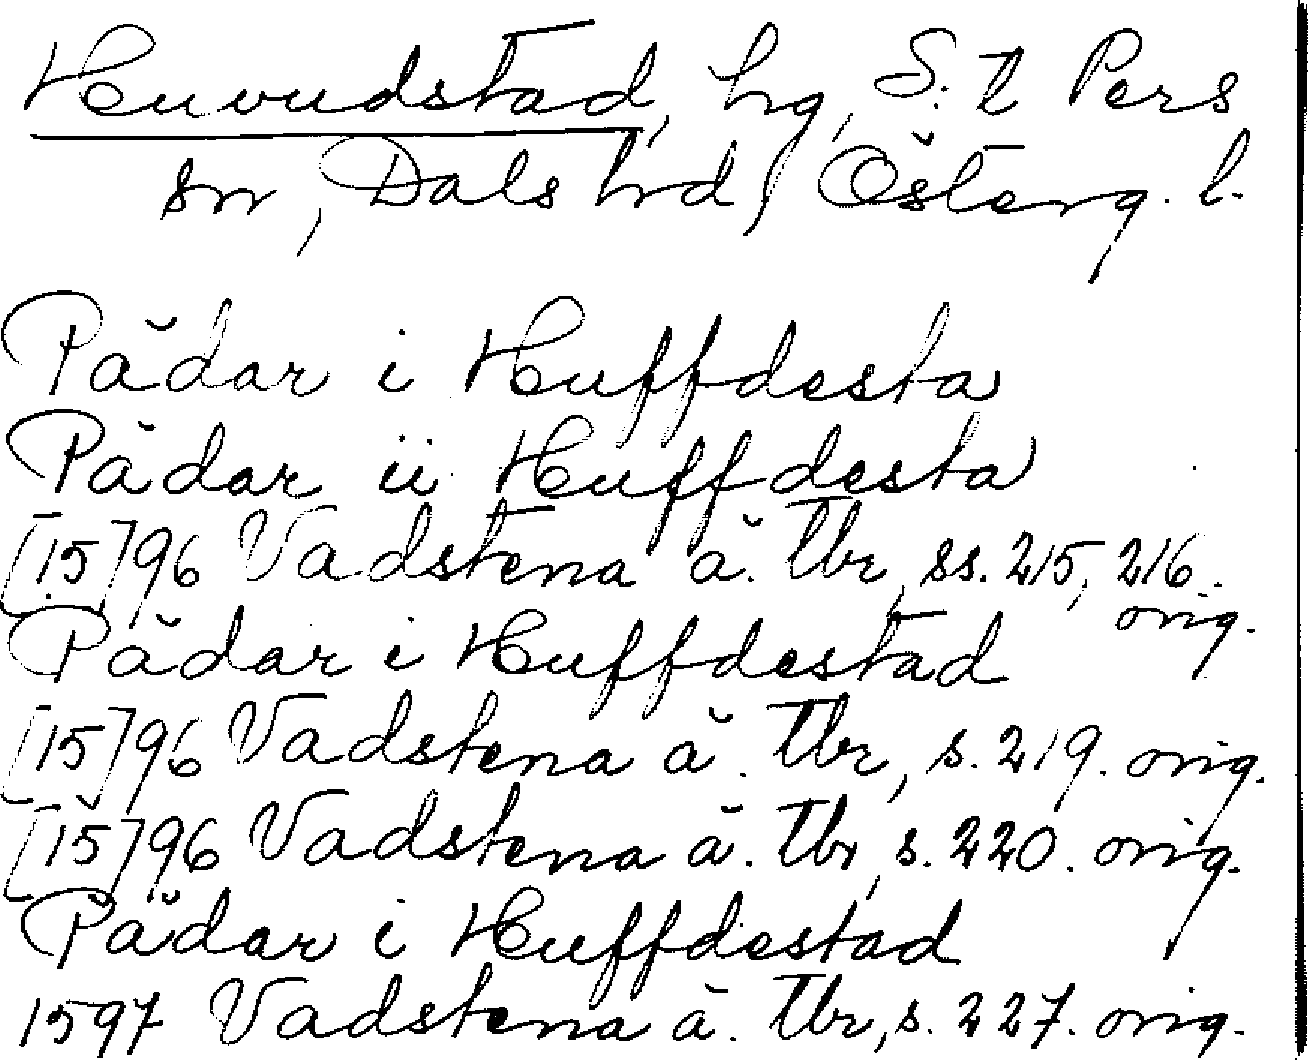 Huvudstad, hg, S:t Pers
sn, Dals hd, Österg. l.
Pädar i Huffdesta
Pädar ii Huffdesta
[15]96 Vadstena ä. Tbr, ss. 215, 216.
orig.
Pädar i Huffdestad
[15]96 Vadstena ä. Tbr, s. 219. orig.
[15]96 Vadstena ä. Tbr, s. 220. orig.
Pädar i Huffdestad
1597 Vadstena ä. Tbr, s. 227. orig.